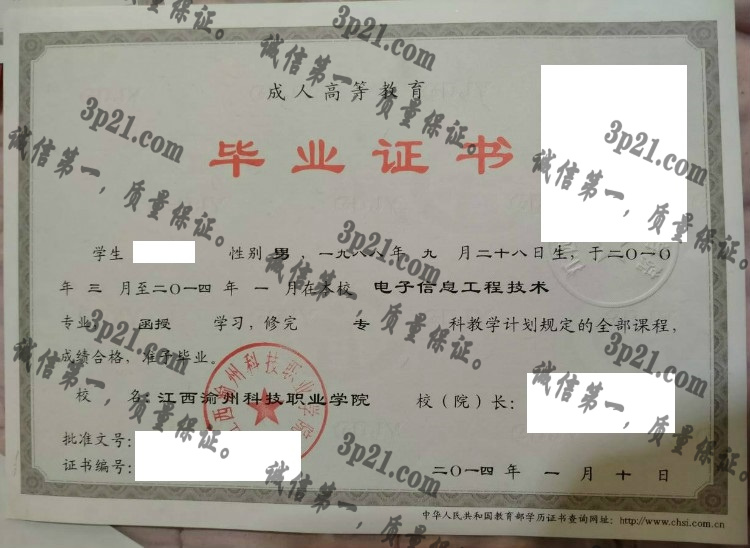 成人高等教育
毕业证书
学生 性别 男 ，一九八八年 九 月二十八日生，于二〇一〇
年 三 月至二〇一四 年 一 月在本校 电子信息工程技术
专业， 函授 学习，修完 专 科教学计划规定的全部课程，
成绩合格，准予毕业。
校 名：江西渝州科技职业学院 校（院）长：
批准文号：
证书编号：
二〇一四 年 一 月 十 日
中华人民共和国教育部学历证书查询网址：http://www.chsi.com.cn
江西渝州科技职业学院
3p21.com
诚信第一，质量保证。
3p21.com
诚信第一，质量保证。
3p21.com
诚信第一，质量保证。
3p21.com
诚信第一，质量保证。
3p21.com
诚信第一，质量保证。
3p21.com
诚信第一，质量保证。
3p21.com
诚信第一，质量保证。
3p21.com
诚信第一，质量保证。